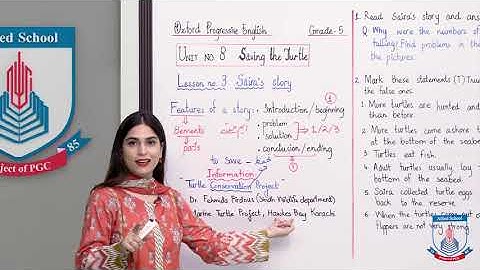 Allied School
Project of PGC
85
Oxford Progressive English Grade-5
Unit no. 8 Saving the Turtle
Lesson no. 3 Saira's story
Features of a story:
Elements
parts
• Introduction/beginning
①
• problem
• solution
→ 1/2/3
• conclusion/ending
①
to save -
Information
Turtle Conservation Project
Dr. Fehmida Firdous (Sindh Wildlife department)
Marine Turtle Project, Hawkes Bay Karachi
1. Read Saira's story and ans
Q Why were the numbers of
falling? Find problems in the
the pictures.
2. Mark these statements (T) True
the false ones.
1. More turtles are hunted and
than before.
2. More turtles come ashore t
at the bottom of the seabed
3. Turtles eat fish.
4. Adult turtles usually lay
bottom of the seabed.
5. Saira collected turtle eggs
back to the reserve.
6. When the turtles
flippers are not very strong
Allied School